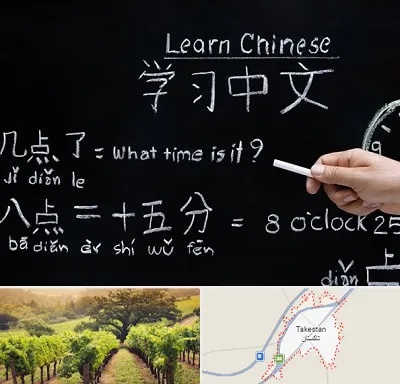 Learn Chinese
学习中文
几点了 = What time is it?
jǐ diǎn le
八点二十五分 = 8 o'clock 25
bā diǎn èr shí wǔ fēn
上
diǎn
9
Takestan
تاکستان